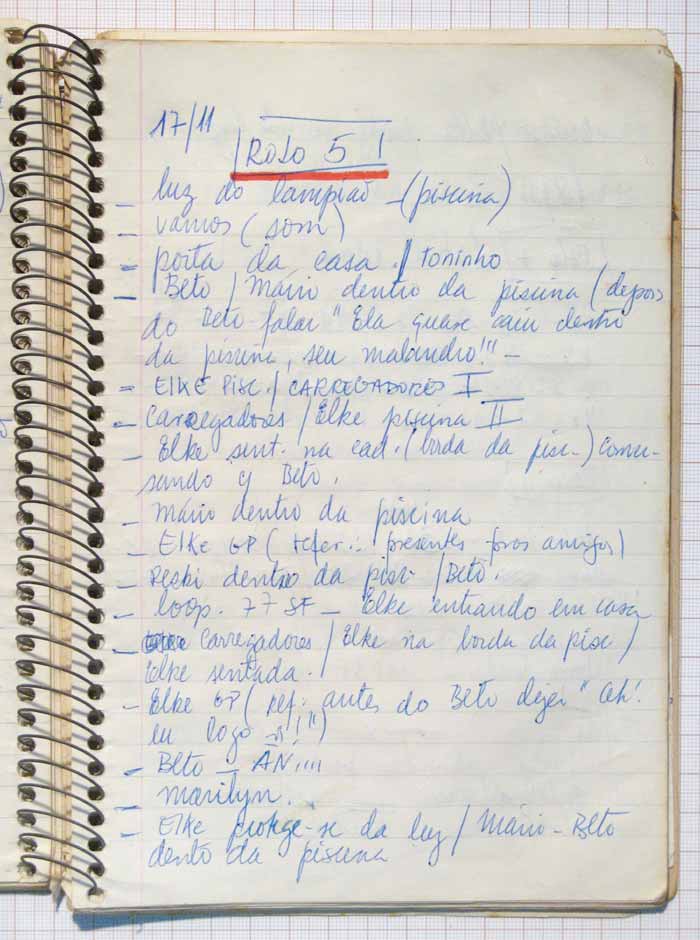 17/11
ROLO 5
- luz do lampião - (piscina)
- vamos (som)
- porta da casa / Toninho
- Beto / Mário dentro da piscina (depois
do Beto falar "Ela quase caiu dentro
da piscina, seu malandro!" -
- ELKE PISC. / CARREGADORES I
- Carregadores / Elke piscina II
- Elke sent. na cad. (borda da pisc.) conver-
sando c/ Beto.
- Mário dentro da piscina
- Elke GP (refer.: presentes amigos)
- dentro da pisc / Beto.
- loop. 77 SF - Elke entrando em casa
- Carregadores / Elke na borda da pisc /
Elke sentada.
- Elke GP (ref: antes do Beto dizer "ah!
eu logo vi!!")
- Beto - AN....
- Marilyn.
- Elke protege-se da luz / Mário - Beto
dento da piscina